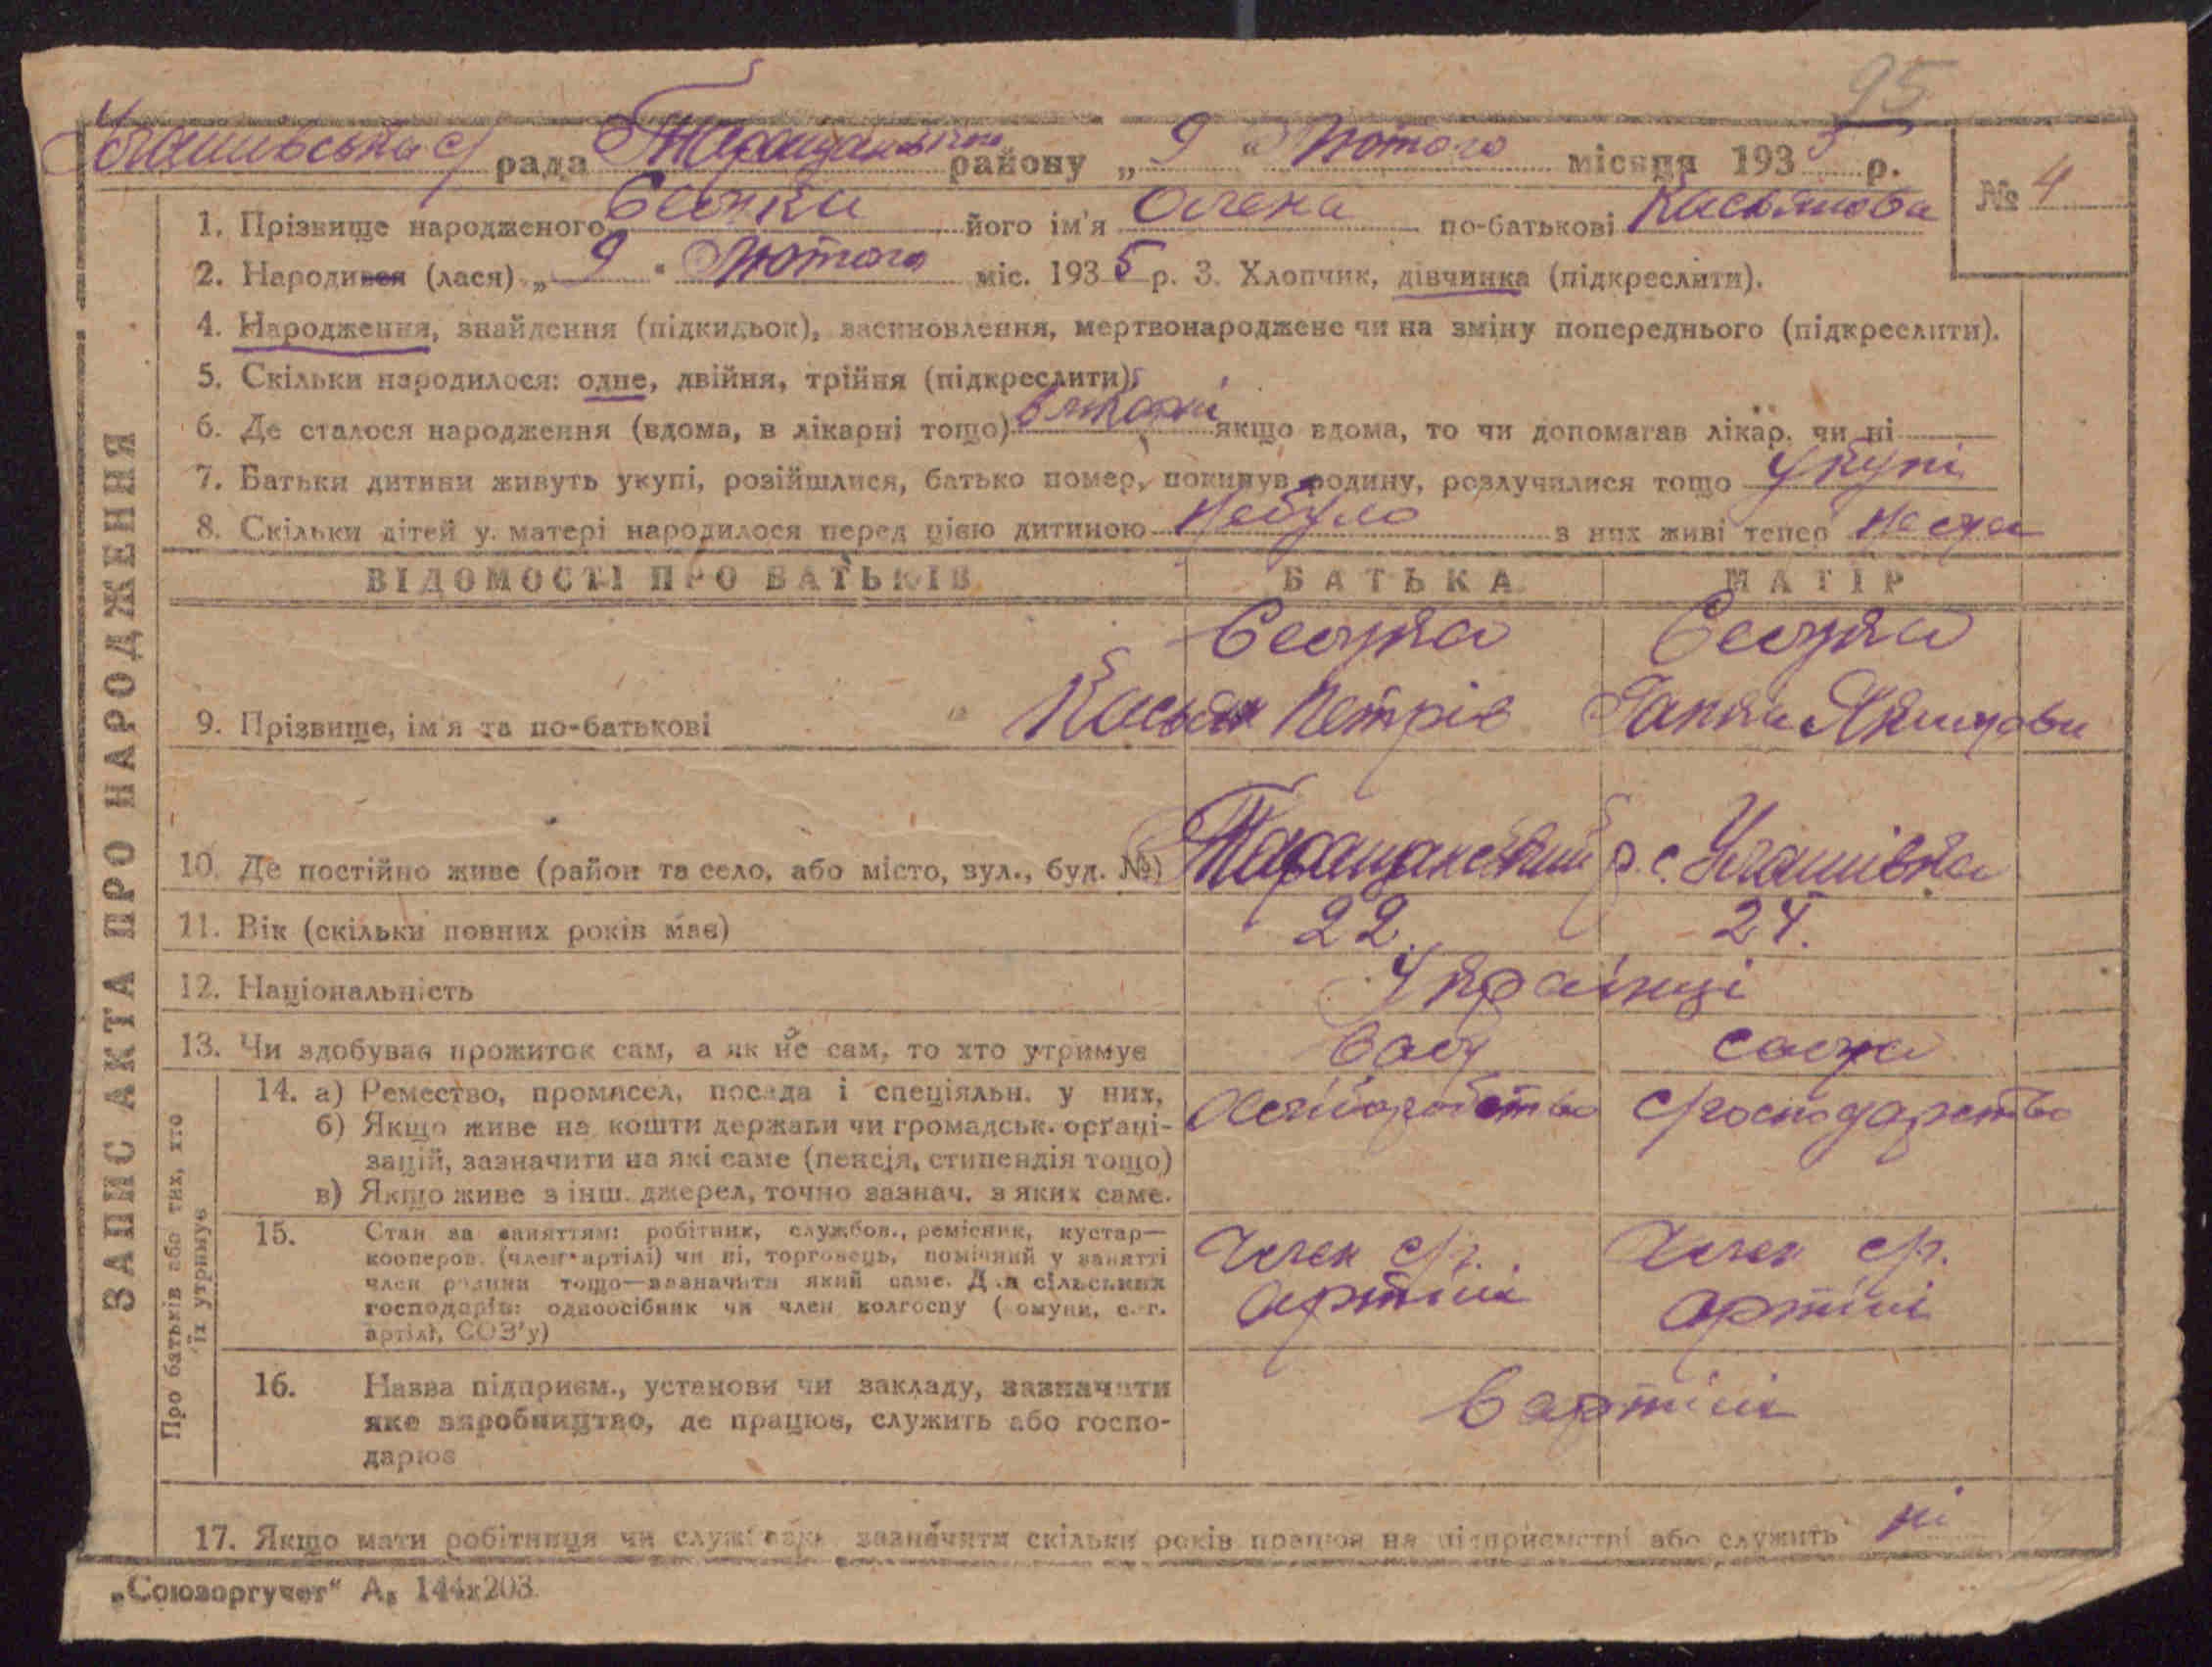 95
Улашівська с/рада Таращанського району „9" Лютого місяця 1935 р.
№ 4
1. Прізвище народженого його ім'я Олена по-батькові Касьянова
2. Народився (лася) „9" Лютого міс. 1935 р. 3. Хлопчик, дівчинка (підкреслити).
4. Народження, знайдення (підкидьок), засиновлення, мертвонароджене чи на зміну попереднього (підкреслити).
5. Скільки народилося: одне, двійня, трійня (підкреслити);
6. Де сталося народження (вдома, в лікарні тощо) якщо вдома, то чи допомагав лікар. чи ні
7. Батьки дитини живуть укупі, розійшлися, батько помер, покинув родину, розлучилися тощо Укупі
8. Скільки дітей у матері народилося перед цією дитиною Небуло з них живі тепер
ВІДОМОСТІ ПРО БАТЬКІВ БАТЬКА МАТІР
9. Прізвище, ім'я та по-батькові Касьян Петрів Ганна Якимова
10. Де постійно живе (район та село, або місто, вул., буд. №) Таращанський р. с. Улашівка
11. Вік (скільки повних років має) 22. 24.
12. Національність Українці
13. Чи здобуває прожиток сам, а як не сам, то хто утримує сам сама
14. а) Ремество, промисел, посада і спеціяльн. у них, с/господарство
б) Якщо живе на кошти держави чи громадськ. організацій, зазначити на які саме (пенсія, стипендія тощо)
в) Якщо живе з інш. джерел, точно зазнач. з яких саме.
15. Стан за заняттям: робітник, службов., ремісник, кустар—
кооперов. (член артілі) чи ні, торговець, помічний у занятті
член родини тощо—зазначити який саме. Для сільських
господарів: одноосібник чи член колгоспу (комуни, с.-г.
артілі, СОЗ'у)
Член с/г. артілі Член с/г. артілі
16. Назва підприєм., установи чи закладу, зазначити
яке виробництво, де працює, служить або господарює
В артілі
17. Якщо мати робітниця чи службовка зазначити скільки років працює на підприємстві або служить ні
„Союзоргучет" А₅ 144х203
ЗАПИС АКТА ПРО НАРОДЖЕННЯ
Про батьків або тих, хто
їх утримує